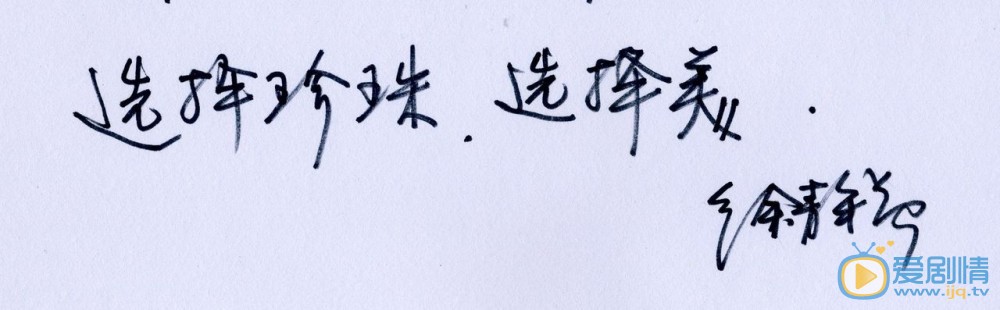 选择珍珠.选择美.
徐静蕾
爱剧情
www.ijq.tv